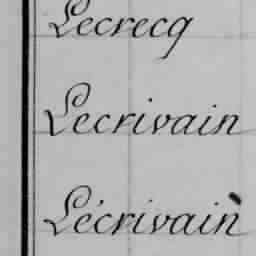 Lecrecq
Lecrivain
Lécrivain